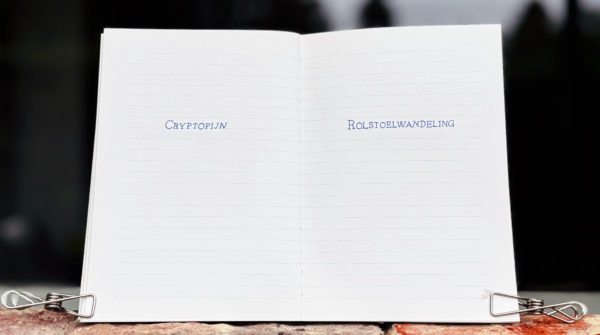 Cryptopijn
Rolstoelwandeling